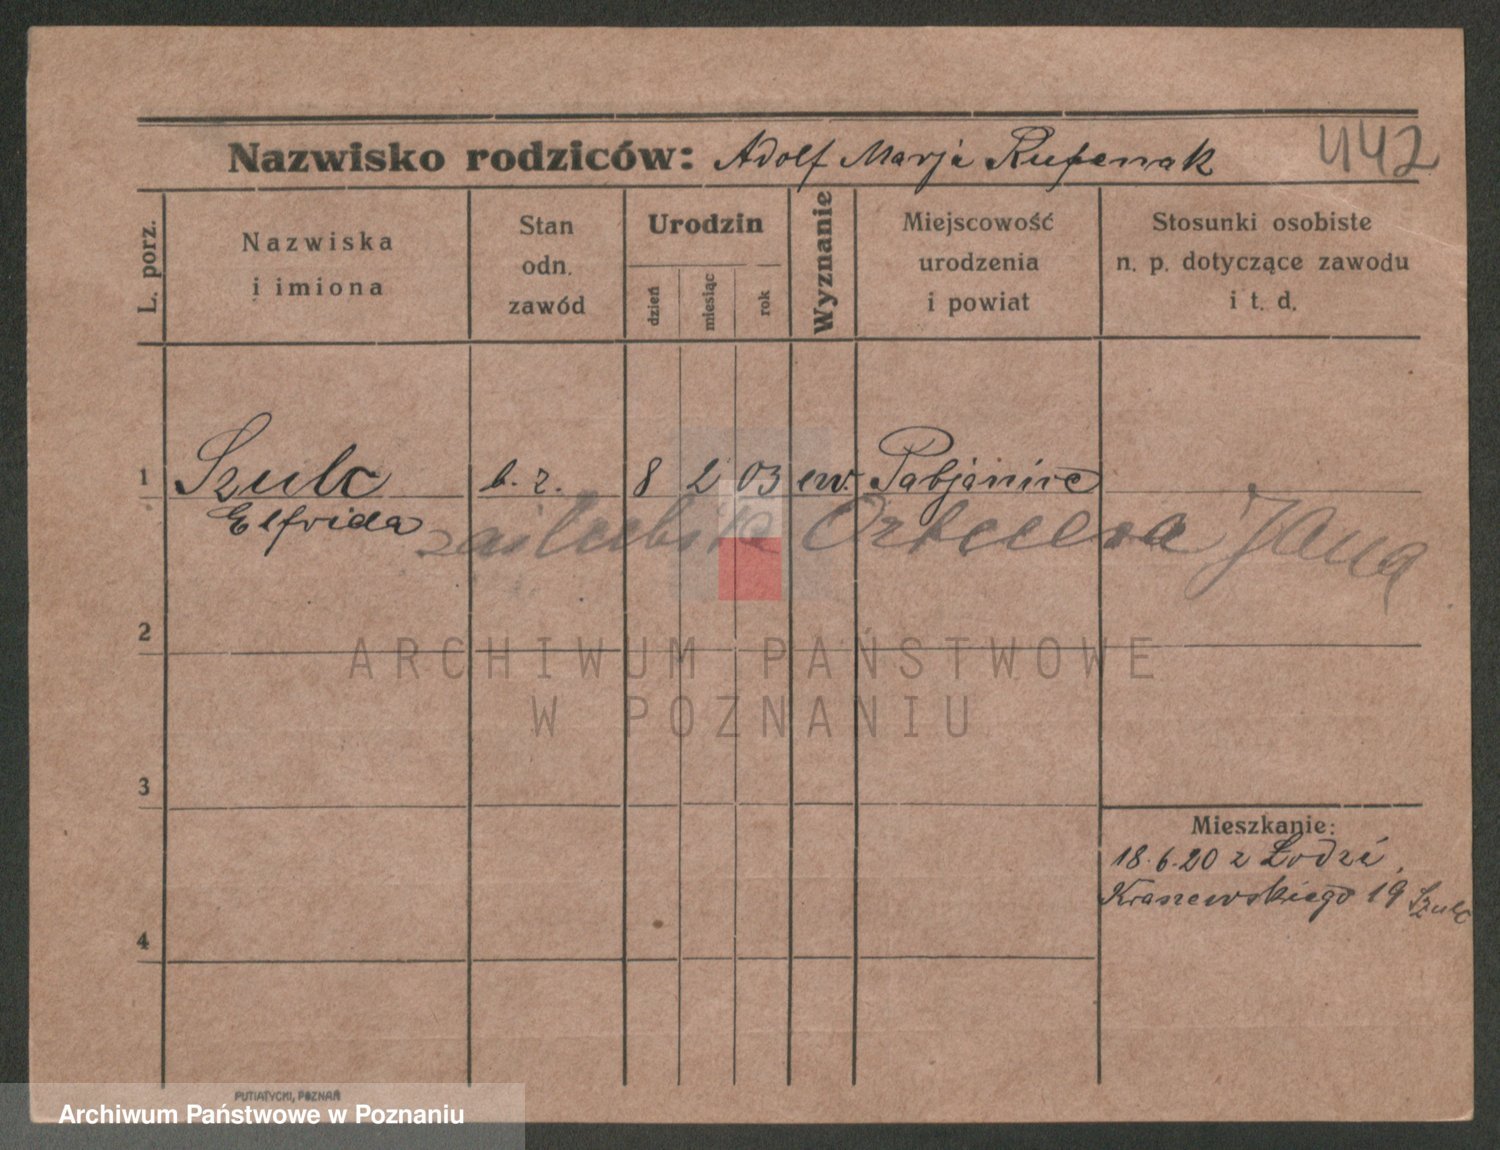 Nazwisko rodziców: Adolf Marja 442
L. porz.
Nazwiska
i imiona
Stan
odn.
zawód
Urodzin
dzień
miesiąc
rok
Wyznanie
Miejscowość
urodzenia
i powiat
Stosunki osobiste
n. p. dotyczące zawodu
i t. d.
1 Szulc b. z. 8 2 03 ew. Pabjanice
Elfrida
Jana
2
ARCHIWUM PAŃSTWOWE
W POZNANIU
3
Mieszkanie:
18.6.20 z Łodzi,
Kraszewskiego 19 Szulc
4
PUTIATYCKI, POZNAŃ
Archiwum Państwowe w Poznaniu